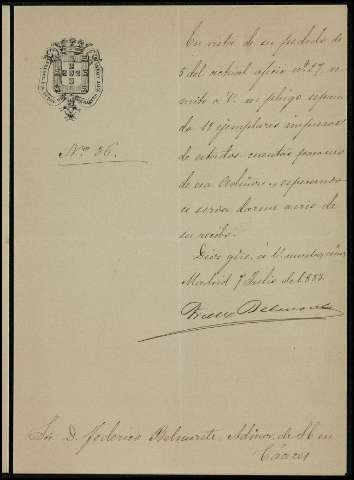 Nº 36.
En vista de su pedido de
5 del actual oficio nº 27, re-
mito a V. en pliego separa-
do 12 ejemplares impresos
de estados cuentas para uso
de esa Admon. y esperando
se sirva darme aviso de
su recibo.
Dios gûe. á V. muchos años
Madrid 7 Julio de 1.883.
Belmonte
Sr. D. Federico Belmonte, Admor. de H en
Cáceres